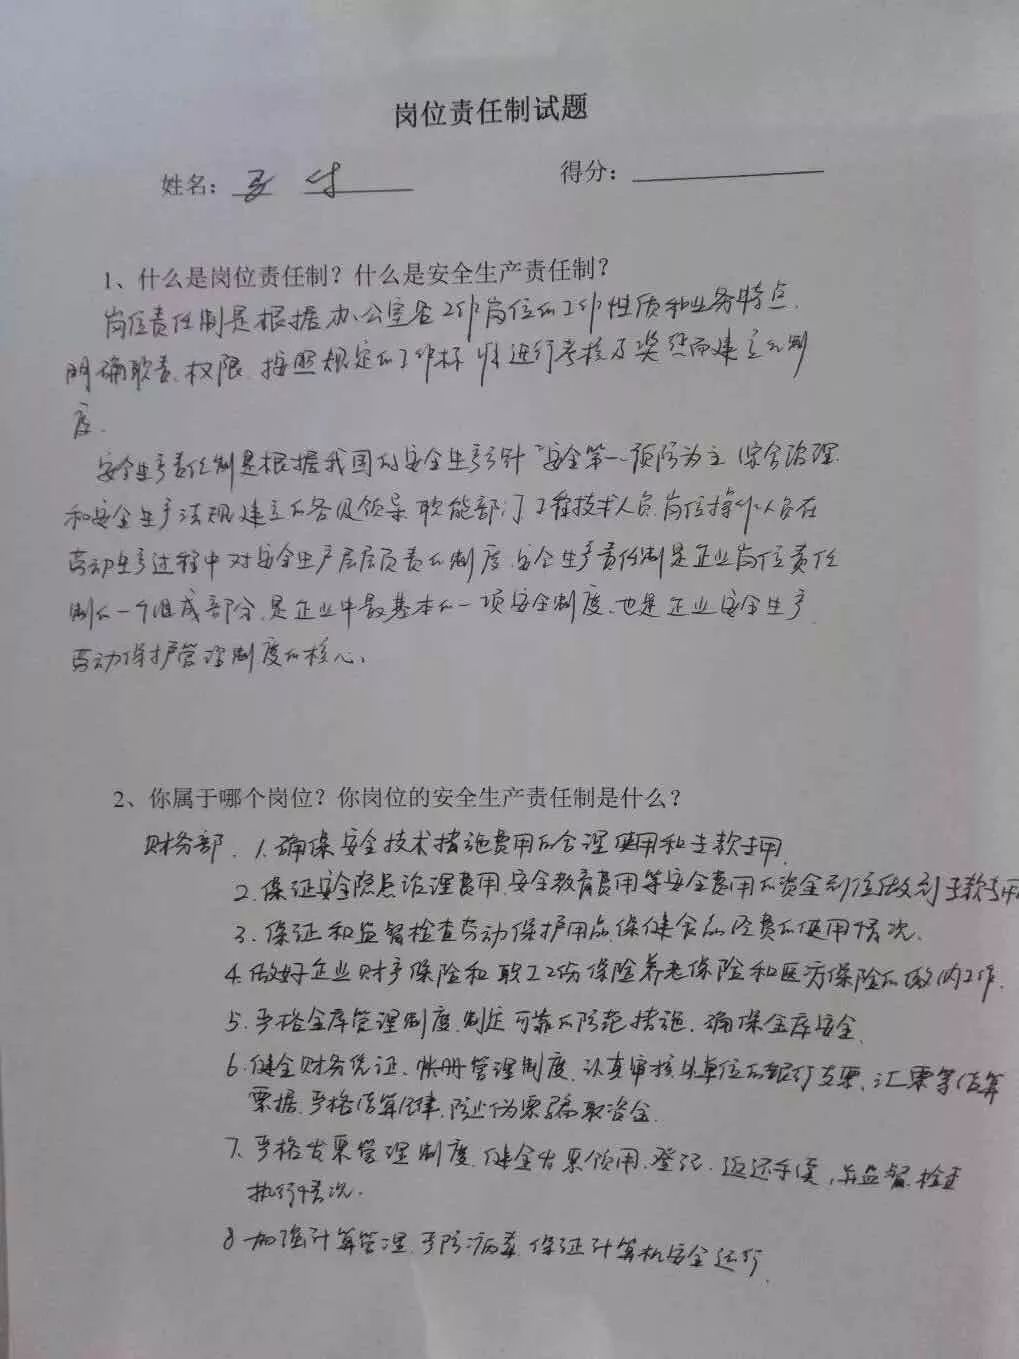 岗位责任制试题
姓名： 得分：
1、什么是岗位责任制？什么是安全生产责任制？
岗位责任制是根据办公室各工作岗位的工作性质和业务特点，
明确职责、权限，按照规定的工作标准进行考核及奖惩而建立的制
度。
安全生产责任制是根据我国的安全生产方针“安全第一、预防为主、综合治理
和安全生产法规建立的各级领导、职能部门、工程技术人员、岗位操作人员在
劳动生产过程中对安全生产层层负责的制度。安全生产责任制是企业岗位责任
制的一个组成部分，是企业中最基本的一项安全制度，也是企业安全生产、
劳动保护管理制度的核心。
2、你属于哪个岗位？你岗位的安全生产责任制是什么？
财务部． 1. 确保安全技术措施费用的合理使用和专款专用．
2. 保证安全隐患治理费用、安全教育费用等安全费用的资金到位做到专款专用
3. 保证和监督检查劳动保护用品、保健食品经费的使用情况．
4. 做好企业财产保险和职工工伤保险养老保险和医疗保险的缴纳工作．
5. 严格金库管理制度，制定可靠的防范措施，确保金库安全．
6. 健全财务凭证、帐册管理制度，认真审核外单位的银行支票、汇票等结算
票据，严格结算纪律，防止伪票骗取资金．
7. 严格发票管理制度，健全发票领用、登记、返还手续，并监督、检查
执行情况．
8. 加强计算管理，予防病毒，保证计算机安全运行．